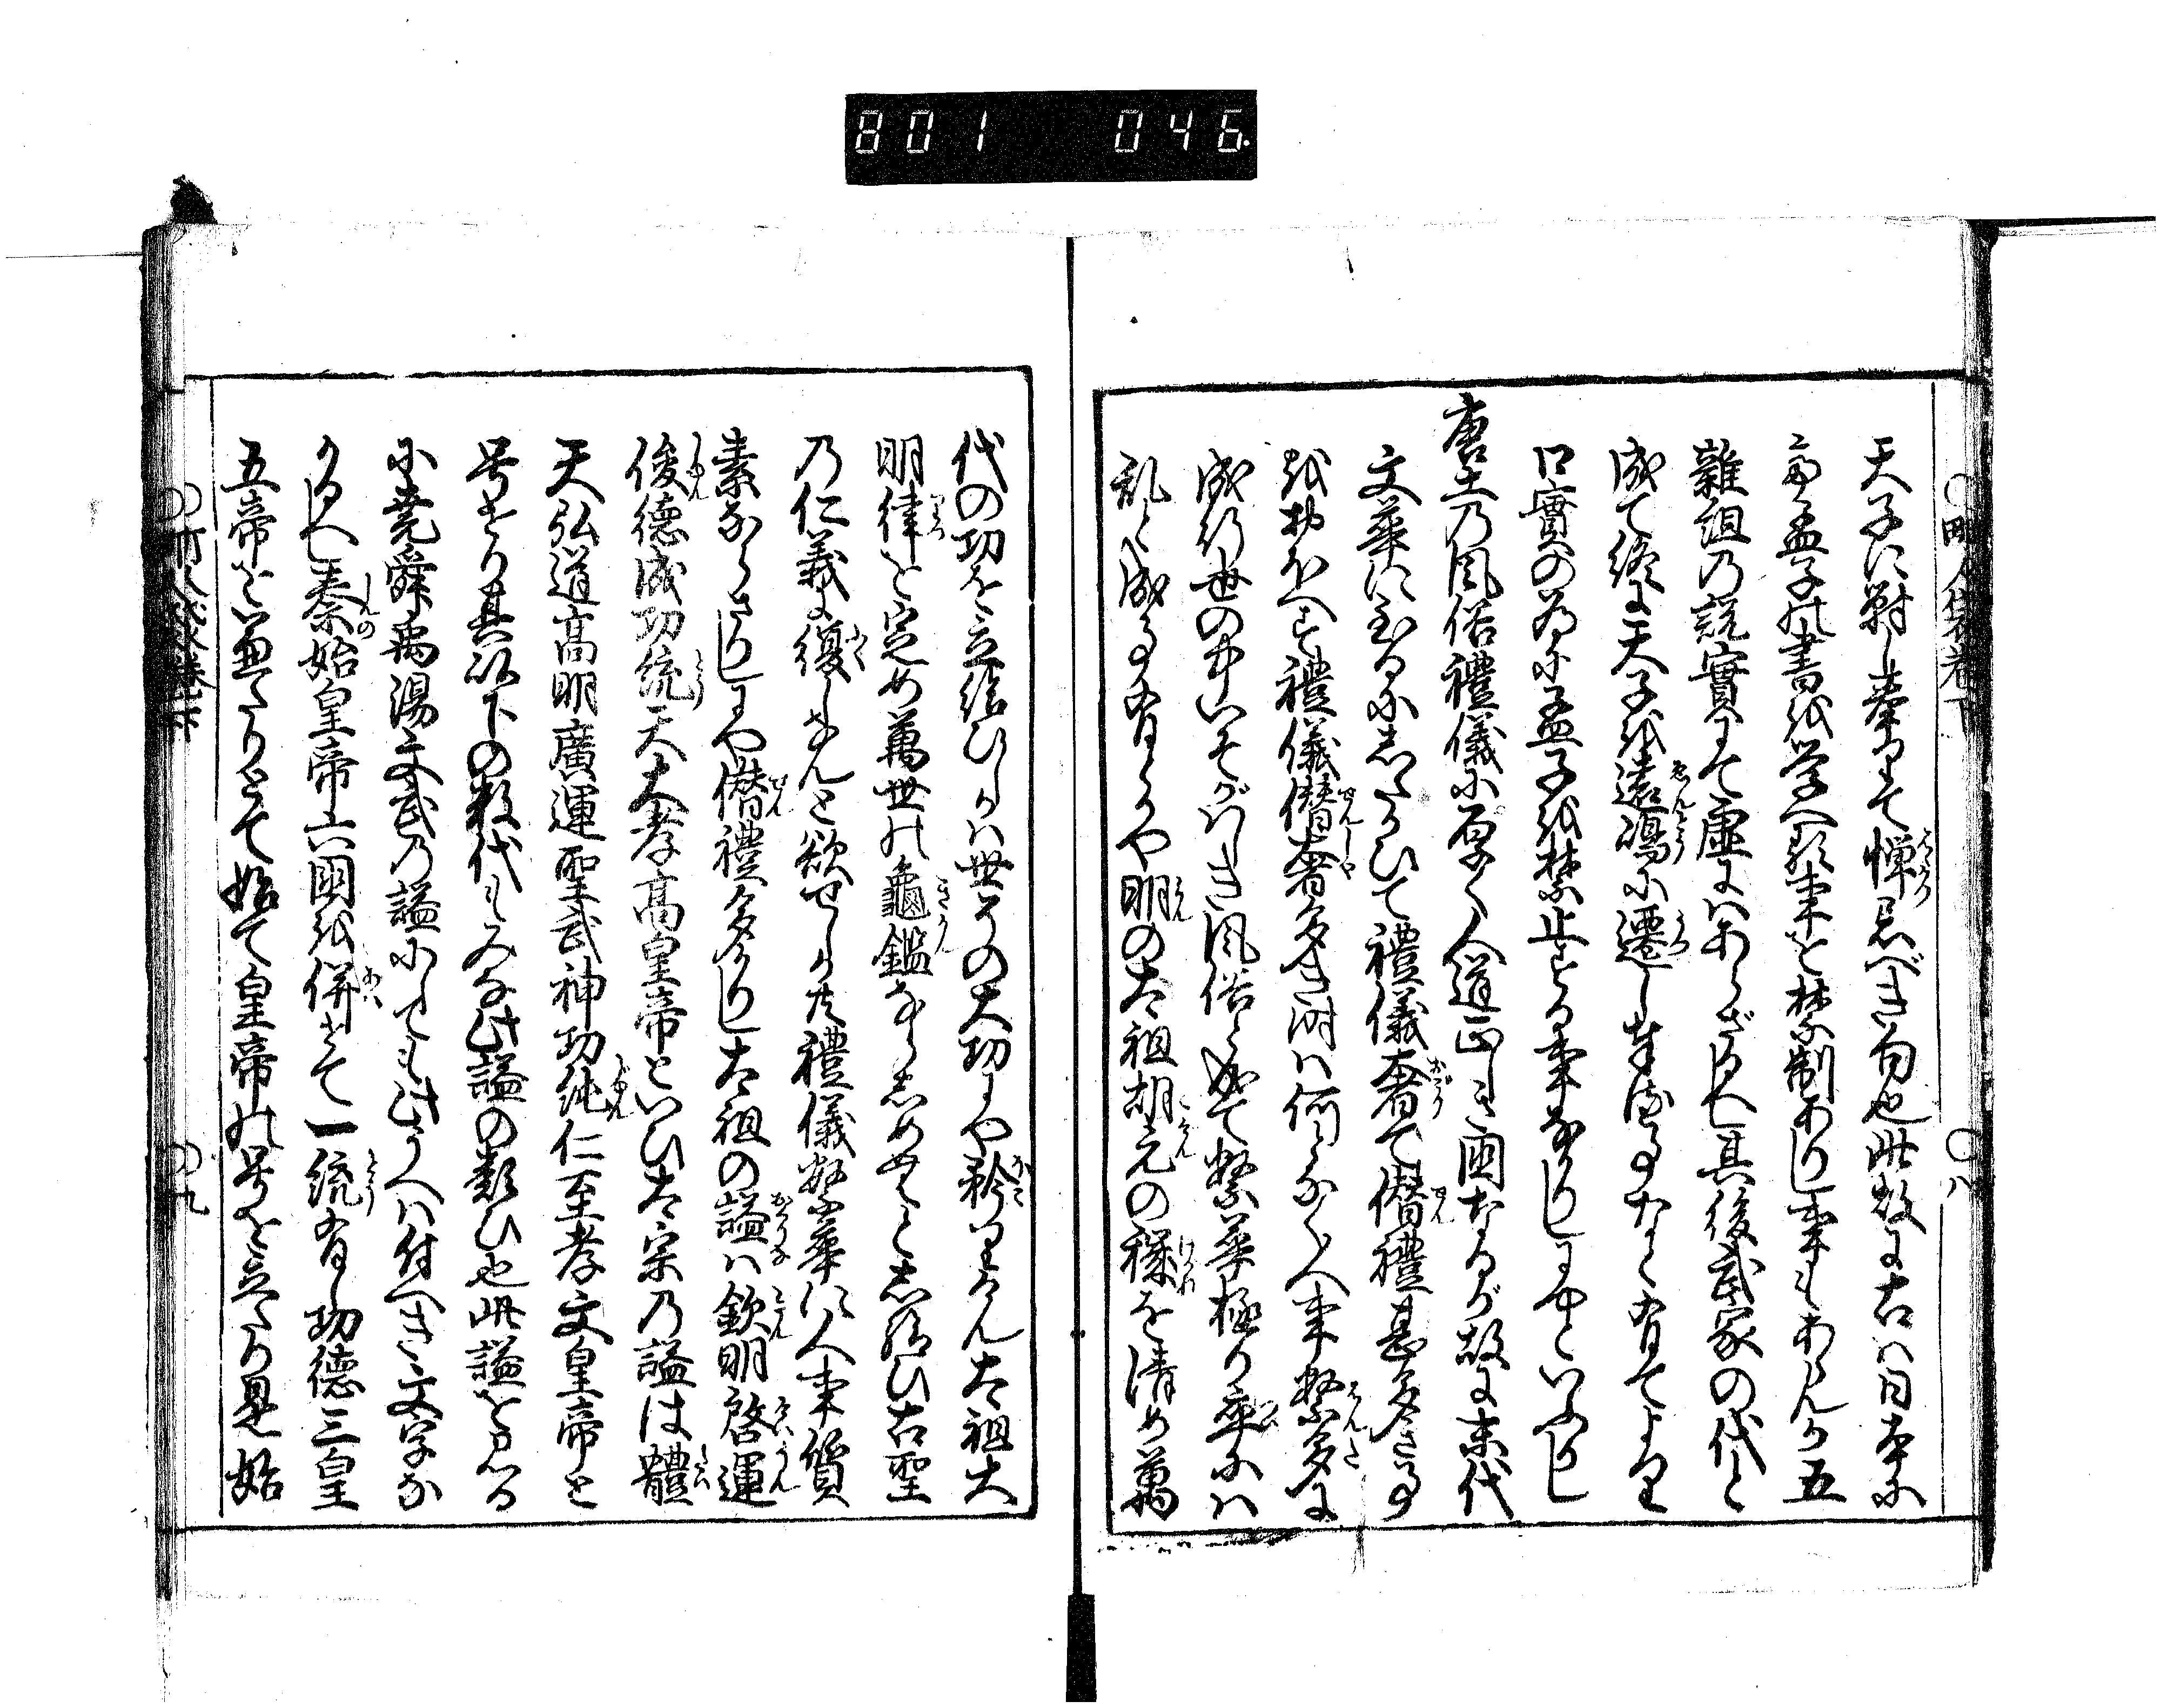 801 046.
天子に對し奉りて憚忌べき旬也此故に古ハ日本に
て孟子の書を学へる事を禁制ありし事もあらんか五
雑俎の説實にて虚にハあらざるへし其後武家の代と
成て終に天子を遠嶋に遷し奉る事なと有てより
口實の為に孟子を禁止する事なかりしにやといふへし
唐土の風俗禮儀に厚く人道正しき国なるが故に末代
文華に至るにしたかひて禮儀奢て僭禮甚多き事
禮儀僭奢多き時ハ何となく人事繁多に
成行世の中いそがハしき風俗と成て繁華極り卒にハ
乱と成る事有にや明の太祖胡元の穢を清め萬
代の功を立給ひしハ世々の大功にや矜るらん太祖大
明律を定め萬世の龜鑑ならしめむとし給ひ古聖
の仁義に復しなんと欲せしか共禮儀繁華に人事質
素ならさりしにや僭禮多かりし太祖の謚ハ欽明啓運
俊德成功統天大孝高皇帝といひ太宗の謚は體
天弘道高明廣運聖武神功純仁至孝文皇帝と
号せり其以下の数代もみな此謚の類ひ也此謚を見る
に堯舜禹湯文武の謚にしても此うへハ付へき文字な
かるへし秦始皇帝六國を併せて一統有し功德三皇
五帝を兼たりとて始て皇帝の号を立たり是始